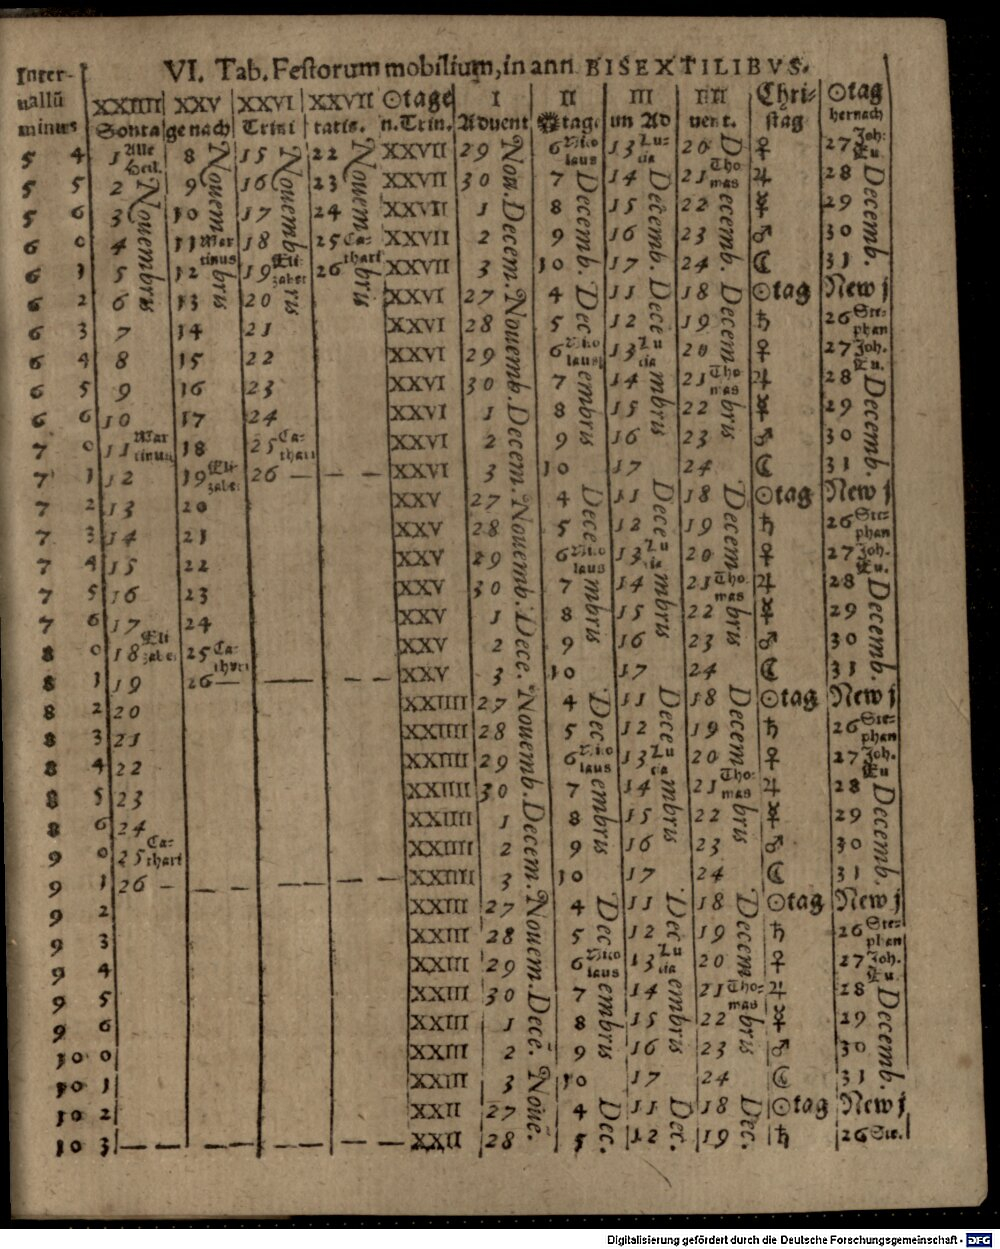 VI. Tab. Festorum mobilium, in ann BISEXTILIBVS.
Inter- XXIIII XXV XXVI XXVII ☉tage I II III IIII Chri- ☉tag
uallū Sonta ge nach Trini tatis. n.Trin. Aduent ☉tag. im Ad uent. stag hernach
minus
5 4 1 Alle Heil. 8 15 22 XXVII 29 6 Nicolaus 13 Lucia 20 ♀ 27 Joh. Eu.
5 5 2 9 16 23 XXVII 30 7 14 21 Thomas ♃ 28
5 6 3 10 17 24 XXVII 1 8 15 22 ☿ 29
6 0 4 11 Martinus 18 25 Cathari XXVII 2 9 16 23 ♂ 30
6 1 5 12 19 Elizabe: 26 XXVII 3 10 17 24 ☾ 31
6 2 6 13 20 XXVI 27 4 11 18 ☉tag New j
6 3 7 14 21 XXVI 28 5 12 19 ♄ 26 Stephan
6 4 8 15 22 XXVI 29 6 Nicolaus 13 Lucia 20 ♀ 27 Joh. Eu.
6 5 9 16 23 XXVI 30 7 14 21 Thomas ♃ 28
6 6 10 17 24 XXVI 1 8 15 22 ☿ 29
7 0 11 Martinus 18 25 Cathari XXVI 2 9 16 23 ♂ 30
7 1 12 19 Elizabe: 26 — — — XXVI 3 10 17 24 ☾ 31
7 2 13 20 XXV 27 4 11 18 ☉tag New j
7 3 14 21 XXV 28 5 12 19 ♄ 26 Stephan
7 4 15 22 XXV 29 6 Nicolaus 13 Lucia 20 ♀ 27 Joh. Eu.
7 5 16 23 XXV 30 7 14 21 Thomas ♃ 28
7 6 17 24 XXV 1 8 15 22 ☿ 29
8 0 18 Elizabe: 25 Cathari XXV 2 9 16 23 ♂ 30
8 1 19 26 — — — — XXV 3 10 17 24 ☾ 31
8 2 20 XXIIII 27 4 11 18 ☉tag New j
8 3 21 XXIIII 28 5 12 19 ♄ 26 Stephan
8 4 22 XXIIII 29 6 Nicolaus 13 Lucia 20 ♀ 27 Joh. Eu
8 5 23 XXIIII 30 7 14 21 Thomas ♃ 28
8 6 24 XXIIII 1 8 15 22 ☿ 29
9 0 25 Cathari XXIIII 2 9 16 23 ♂ 30
9 1 26 — — — — — — XXIIII 3 10 17 24 ☾ 31
9 2 XXIII 27 4 11 18 ☉tag New j
9 3 XXIII 28 5 12 19 ♄ 26 Stephan
9 4 XXIII 29 6 Nicolaus 13 Lucia 20 ♀ 27 Joh. Eu
9 5 XXIII 30 7 14 21 Thomas ♃ 28
9 6 XXIII 1 8 15 22 ☿ 29
10 0 XXIII 2 9 16 23 ♂ 30
10 1 XXIII 3 10 17 24 ☾ 31
10 2 XXII 27 4 11 18 ☉tag New j
10 3 — — — — — — — XXII 28 5 12 19 ♄ 26 Ste.
Nouembris
Nouembris
Nouembris
Nouembris
Nou. Decem. Nouemb. Decem. Nouemb. Dece. Nouemb. Decem. Nouem. Dece. Noue.
Decemb. Decembris Decembris Decembris Decembris Dec.
Decemb. Decembris Decembris Decembris Decembris Dec.
Decemb. Decembris Decembris Decembris Decembris Dec.
Decemb. Decemb. Decemb. Decemb. Decemb.
Digitalisierung gefördert durch die Deutsche Forschungsgemeinschaft - DFG